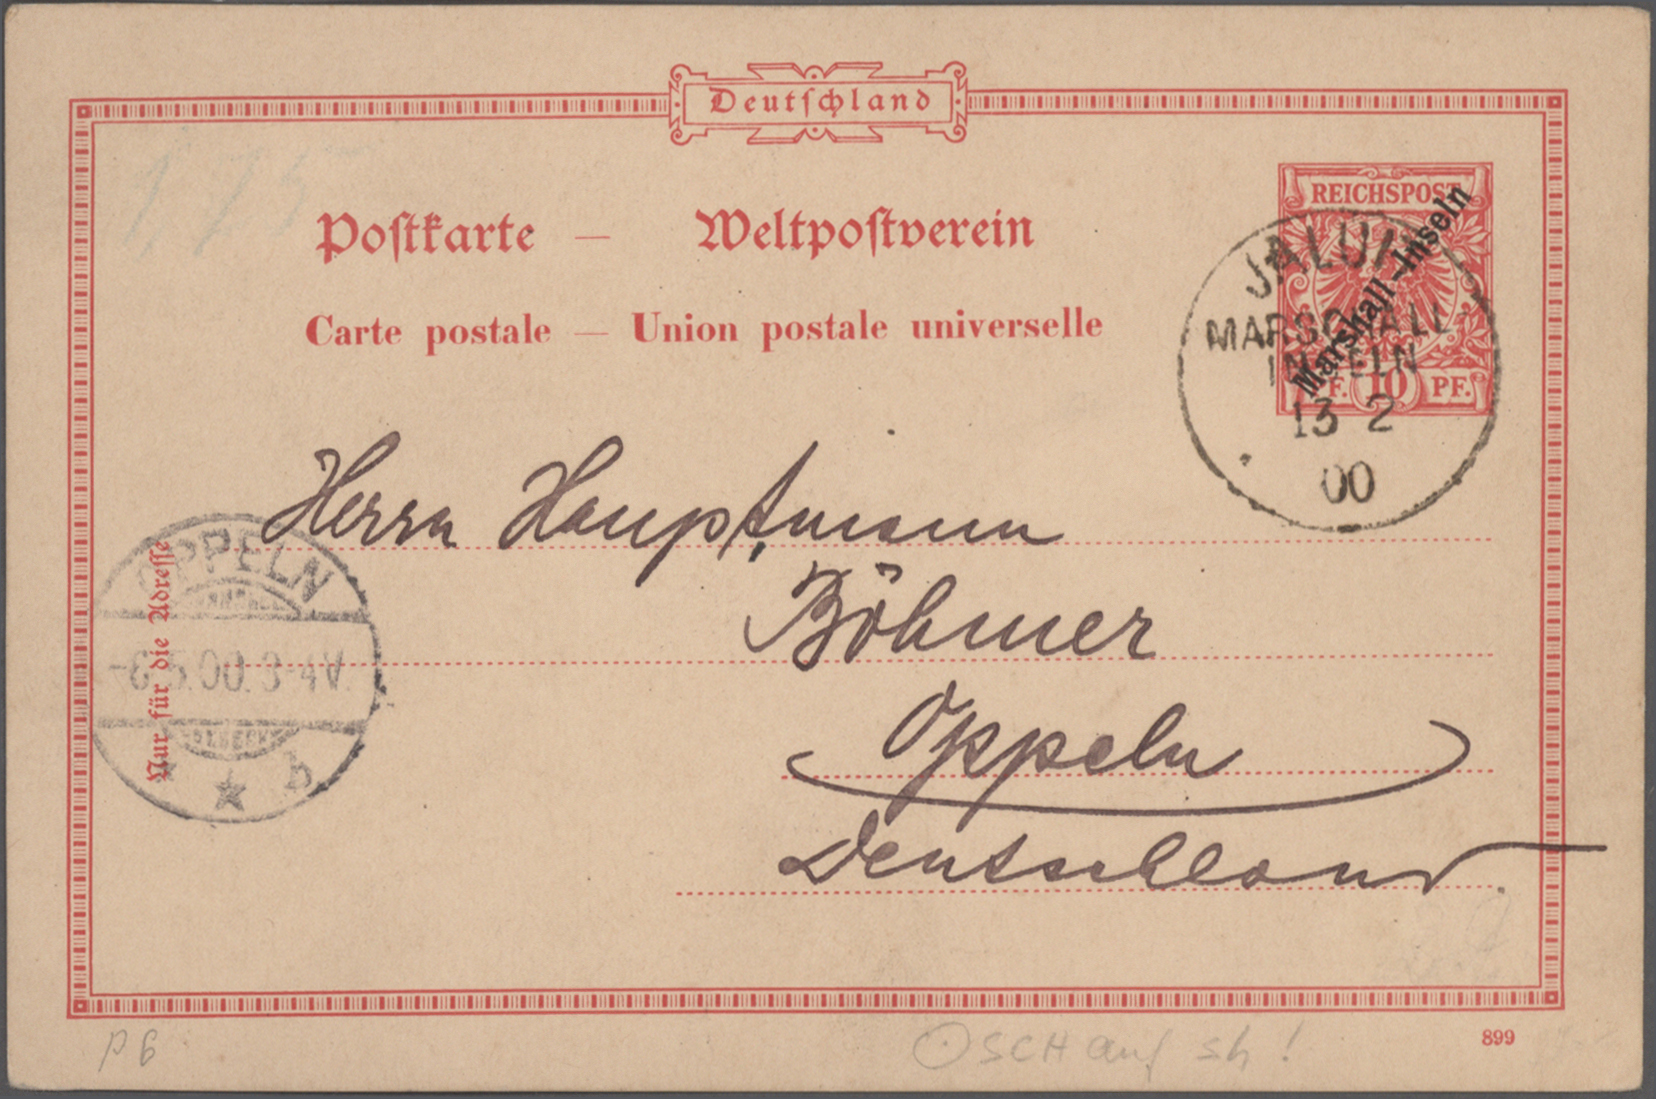 Deutschland
Postkarte — Weltpostverein
Carte postale — Union postale universelle
REICHSPOST
Marshall-Inseln
PF. 10 PF.
JALUIT
MARSCHALL-
INSELN
13 2
00
Herrn Hauptmann
Böhmer
Oppeln
Deutschland.
Nur für die Adresse
OPPELN
-6.5.00.3-4V.
b
P 6
SCH auf Sh!
899